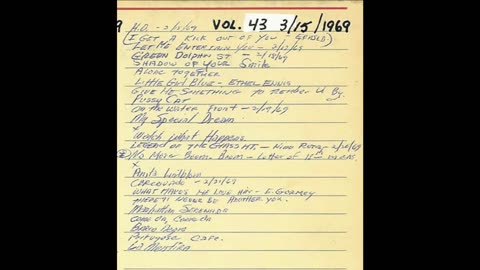 9 H.D. - 2/15/69 VOL. 43 3/15/1969
(I GET A KICK OUT OF YOU - ERASED)
LET ME ENTERTAIN YOU - 2/17/69
GREEN DOLPHIN ST - 2/18/69
SHADOW OF YOUR SMILE
ALONE TOGETHER
LITTLE GIRL BLUE - ETHEL ENNIS
GIVE ME SOMETHING TO REMEMBER U By.
PUSSY CAT
ON THE WATER FRONT - 2/19/69
My Special Dream
x
Watch What Happens
LEGEND OF THE GLASS MT. - NINO ROTA - 2/20/69
No More Boom Boom - LETTER OF
x
Anita
CORCOVADO - 2/21/69
WHAT MAKES ME LOVE HIM - E. GORMEY
THERE'll NEVER BE ANOTHER YOU.
Manhattan SERENADE
Portuguese Cafe.
La Mentira